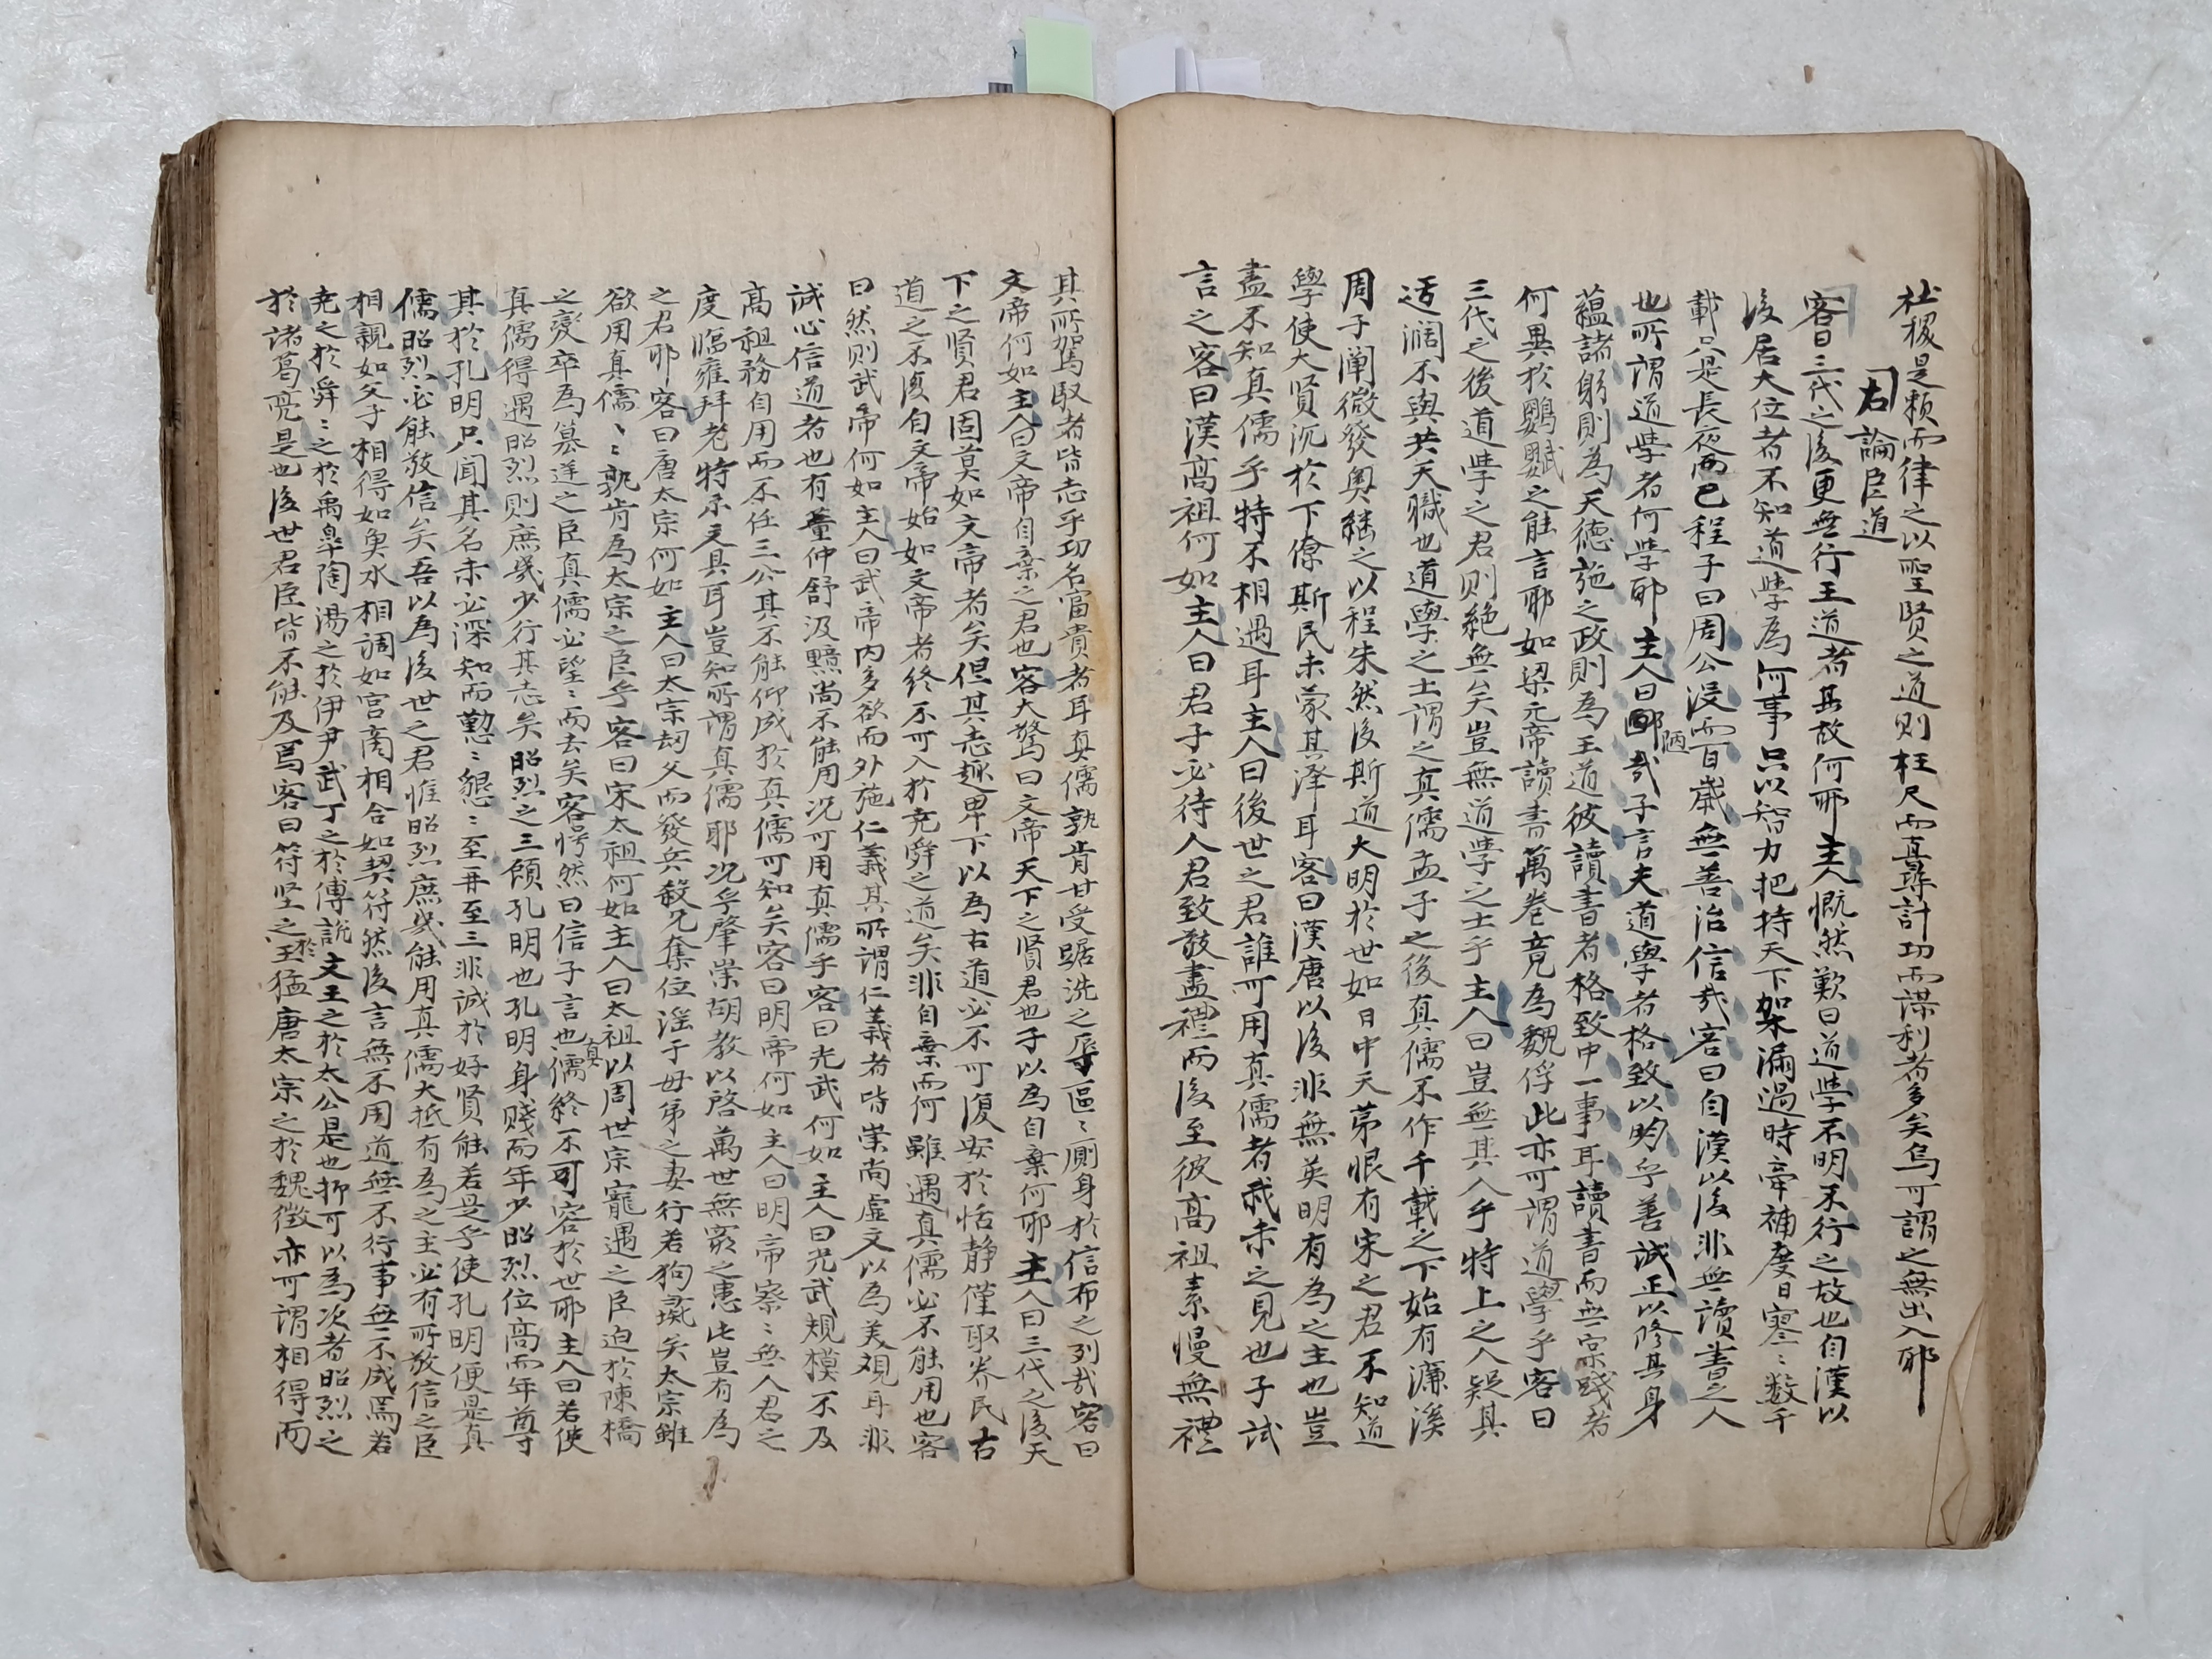 社稷是賴而律之以聖賢之道則枉尺而尋計功而謀利者多矣烏可謂之無出入耶
右論臣道
客曰三代之後更無行王道者其故何耶主人慨然歎曰道學不明不行之故也自漢以
後居大位者不知道學為何事只以智力把持天下架漏過時牽補度日寥〻數千
載只是長夜而已程子曰周公沒而百歲無善治信哉客曰自漢以後非無讀書之人
也所謂道學者何學耶主人曰鄙哉子言陋夫道學者格致以明乎善誠正以修其身
蘊諸躬則為天德施之政則為王道彼讀書者格致中一事耳讀書而無實踐者
何異於鸚鵡之能言耶如梁元帝讀書萬卷竟為魏俘此亦可謂道學乎客曰
三代之後道學之君則絶無矣豈無道學之士乎主人曰豈無其人乎特上之人疑其
迂濶不與共天職也道學之士謂之真儒孟子之後真儒不作千載之下始有濂溪
周子闡微發奧繼之以程朱然後斯道大明於世如日中天第恨有宋之君不知道
學使大賢沉於下僚斯民未蒙其澤耳客曰漢唐以後非無英明有為之主也豈
盡不知真儒乎特不相遇耳主人曰後世之君誰可用真儒者我未之見也子試
言之客曰漢高祖何如主人曰君子必待人君致敬盡禮而後至彼高祖素慢無禮
其所駕馭者皆志乎功名富貴者耳真儒孰肯甘受踞洗之辱區〻廁身於信布之列哉客曰
文帝何如主人曰文帝自棄之君也客大驚曰文帝天下之賢君也子以為自棄何耶主人曰三代之後天
下之賢君固莫如文帝者矣但其志趣卑下以為古道必不可復安於恬靜僅取养民古
道之不復自文帝始如文帝者終不可入於堯舜之道矣非自棄而何雖遇真儒必不能用也客
曰然則武帝何如主人曰武帝內多欲而外施仁義其所謂仁義者皆崇尚虛文以為美觀耳非
誠心信道者也有董仲舒汲黯尚不能用况可用真儒乎客曰光武何如主人曰光武規模不及
高祖務自用而不任三公其不能仰成於真儒可知矣客曰明帝何如主人曰明帝察〻無人君之
度臨雍拜老特示文具耳豈知所謂真儒耶况乎肇崇胡教以啓萬世無窮之患此豈有為
之君耶客曰唐太宗何如主人曰太宗刼父而發兵殺兄奪位淫于母弟之妻行若狗彘矣太宗雖
欲用真儒〻〻孰肯為太宗之臣乎客曰宋太祖何如主人曰太祖以周世宗寵遇之臣迫於陳橋
之變卒為篡逆之臣真儒必望〻而去矣客愕然曰信子言也真儒終不可容於世耶主人曰若使
真儒得遇昭烈則庶幾少行其志矣昭烈之三顧孔明也孔明身賤而年少昭烈位高而年尊
其於孔明只聞其名未必深知而懃〻懇〻至再至三非誠於好賢能若是乎使孔明便是真
儒昭烈必能敬信矣吾以為後世之君惟昭烈庶幾能用真儒大抵有為之主必有所敬信之臣
相親如父子相得如魚水相調如宮商相合如契符然後言無不用道無不行事無不成焉若
堯之於舜〻之於禹皋陶湯之於伊尹武丁之於傅說文王之於太公是也抑可以為次者昭烈之
於諸葛亮是也後世君臣皆不能及焉客曰符坚之於王猛唐太宗之於魏徵亦可謂相得而